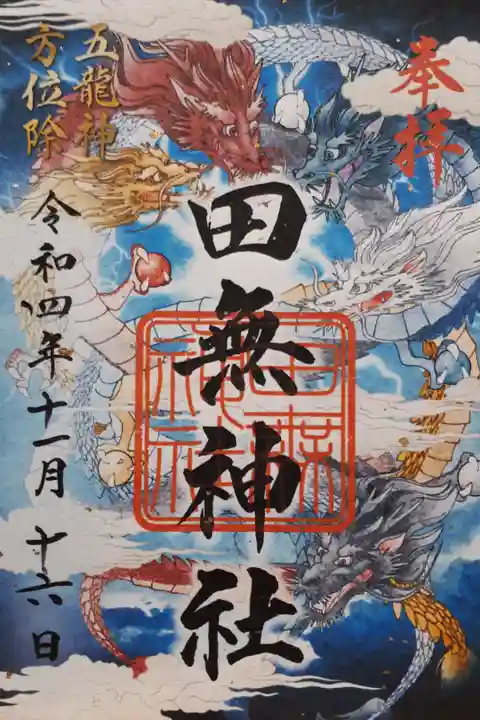 奉拝
田無神社
田無神社
五龍神
方位除
令和四年十一月十六日